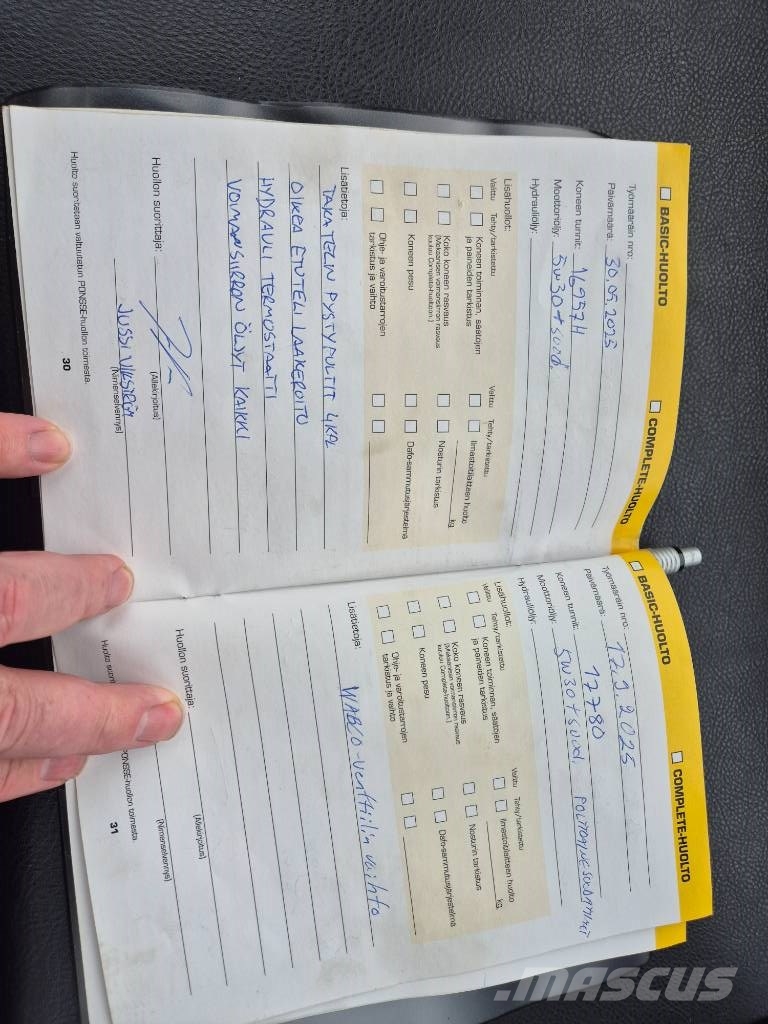 BASIC-HUOLTO
COMPLETE-HUOLTO
Työmääräin nro:
Päivämäärä: 30.05.2025
Koneen tunnit: 16957H
Moottoriöljy: 5W30+suod.
Hydrauliöljy:
Lisähuollot:
Valittu Tehty/tarkistettu
Koneen toiminnan, säätöjen
ja paineiden tarkistus
Koko koneen rasvaus
(Mekaanisen voimansiirron rasvaus
kuuluu Complete-huoltoon.)
Koneen pesu
Ohje- ja varoitustarrojen
tarkistus ja vaihto
Valittu Tehty/tarkistettu
Ilmastointilaitteen huolto
kg
Nosturin tarkistus
Dafo-sammutusjärjestelmä
Lisätietoja: TAKA TELIN PYSTYPULTIT 4KPL
OIKEA ETUTELI LAAKEROITU
HYDRAULI TERMOSTAATTI
VOIMANSIIRRON ÖLJYT KAIKKI
Huollon suorittaja:
(Allekirjoitus)
JUSSI
(Nimenselvennys)
Huolto suoritetaan valtuutetun PONSSE-huollon toimesta.
30
BASIC-HUOLTO
COMPLETE-HUOLTO
Työmääräin nro:
Päivämäärä: 17.9.2025
Koneen tunnit: 17780
Moottoriöljy: 5W30+suod. POLTTOAINESUODATTIMET
Hydrauliöljy:
Lisähuollot:
Valittu Tehty/tarkistettu
Koneen toiminnan, säätöjen
ja paineiden tarkistus
Koko koneen rasvaus
(Mekaanisen voimansiirron rasvaus
kuuluu Complete-huoltoon.)
Koneen pesu
Ohje- ja varoitustarrojen
tarkistus ja vaihto
Valittu Tehty/tarkistettu
Ilmastointilaitteen huolto
kg
Nosturin tarkistus
Dafo-sammutusjärjestelmä
Lisätietoja: WABCO-venttiilin vaihto
Huollon suorittaja:
(Allekirjoitus)
(Nimenselvennys)
Huolto PONSSE-huollon toimesta.
31
mascus